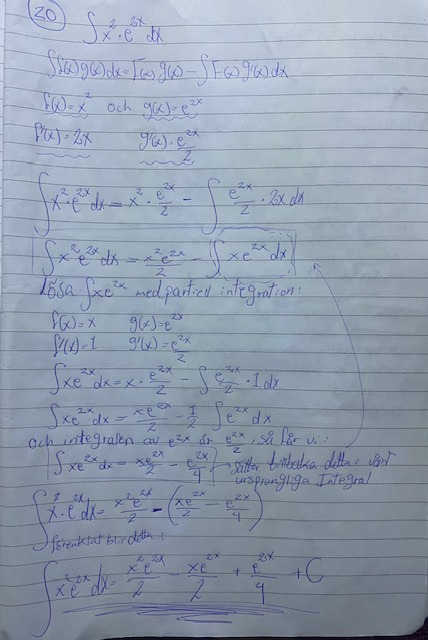 20
∫x²·e²ˣdx
∫f(x)g(x)dx=F(x)g(x)-∫F(x)g'(x)dx
f(x)=x² och g(x)=e²ˣ
f'(x)=2x g'(x)=e²ˣ/2
∫x²·e²ˣdx=x²·e²ˣ/2-∫e²ˣ/2·2xdx
∫x²e²ˣdx=x²e²ˣ/2-∫xe²ˣdx
Lösa ∫xe²ˣ med partiell integration:
f(x)=x g(x)=e²ˣ
f'(x)=1 g'(x)=e²ˣ/2
∫xe²ˣdx=x·e²ˣ/2-∫e²ˣ/2·1dx
∫xe²ˣdx=xe²ˣ/2-1/2∫e²ˣdx
och integralen av e²ˣ är e²ˣ/2, så får vi:
∫xe²ˣdx=xe²ˣ/2-e²ˣ/4 sätter tillbaka detta i vårt
ursprungliga Integral
∫x²·e²ˣdx=x²e²ˣ/2-(xe²ˣ/2-e²ˣ/4)
förenklat blir detta:
∫x²e²ˣdx=x²e²ˣ/2-xe²ˣ/2+e²ˣ/4+C